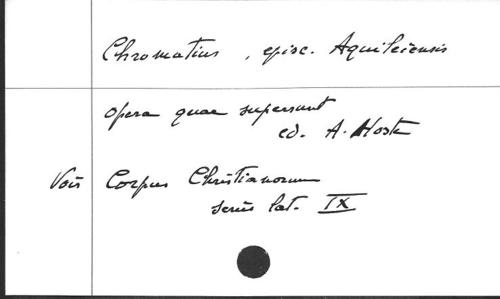 Chromatius, episc. Aquileiensis
opera quae supersunt
ed. A. Hoste
Voir Corpus Christianorum
series lat. IX